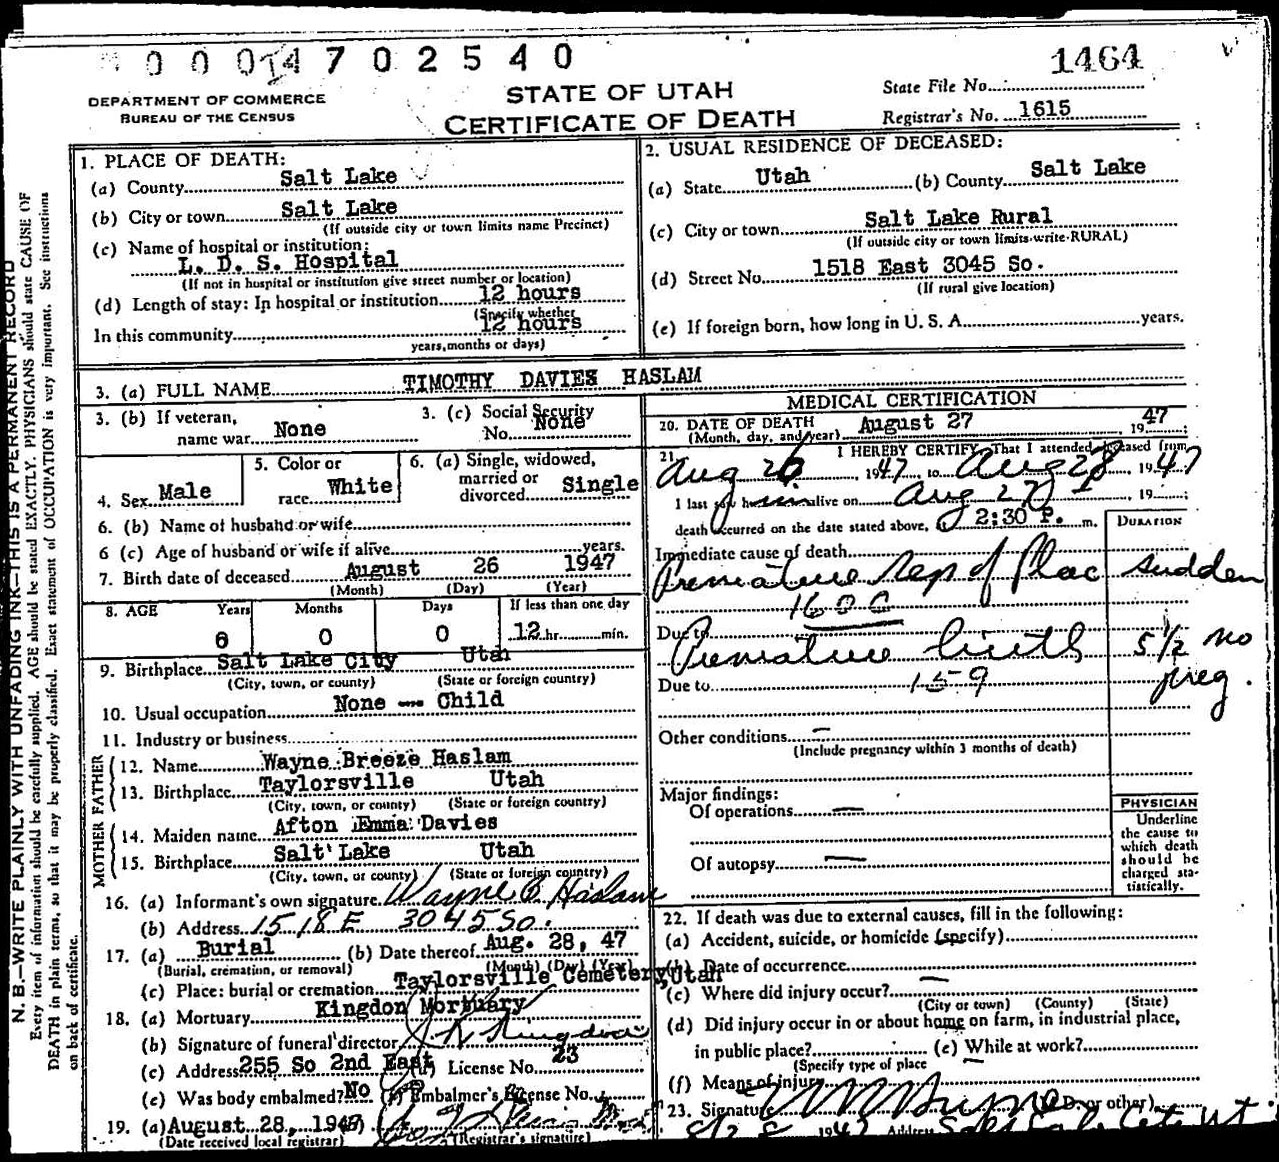 0 0 0 4 7 0 2 5 4 0
1464
DEPARTMENT OF COMMERCE
BUREAU OF THE CENSUS
STATE OF UTAH
CERTIFICATE OF DEATH
State File No.
Registrar's No. 1615
N. B.—WRITE PLAINLY WITH UNFADING INK—THIS IS A PERMANENT RECORD
Every item of information should be carefully supplied. AGE should be stated EXACTLY. PHYSICIANS should state CAUSE OF
DEATH in plain terms, so that it may be properly classified. Exact statement of OCCUPATION is very important. See instructions
on back of certificate.
1. PLACE OF DEATH:
(a) County Salt Lake
(b) City or town Salt Lake
(If outside city or town limits name Precinct)
(c) Name of hospital or institution:
L. D. S. Hospital
(If not in hospital or institution give street number or location)
(d) Length of stay: In hospital or institution 12 hours
(Specify whether
In this community 12 hours
years, months or days)
2. USUAL RESIDENCE OF DECEASED:
(a) State Utah (b) County Salt Lake
(c) City or town Salt Lake Rural
(If outside city or town limits write RURAL)
(d) Street No. 1518 East 3045 So.
(If rural give location)
(e) If foreign born, how long in U. S. A. years.
3. (a) FULL NAME TIMOTHY DAVIES HASLAM
3. (b) If veteran, name war None
3. (c) Social Security No. None
4. Sex Male
5. Color or race White
6. (a) Single, widowed, married or divorced Single
6. (b) Name of husband or wife
6 (c) Age of husband or wife if alive years.
7. Birth date of deceased August 26 1947
(Month) (Day) (Year)
8. AGE Years Months Days If less than one day
0 0 0 12 hr. min.
9. Birthplace Salt Lake City Utah
(City, town, or county) (State or foreign country)
10. Usual occupation None -- Child
11. Industry or business
FATHER
12. Name Wayne Breeze Haslam
13. Birthplace Taylorsville Utah
(City, town, or county) (State or foreign country)
MOTHER
14. Maiden name Afton Emma Davies
15. Birthplace Salt Lake Utah
(City, town, or county) (State or foreign country)
16. (a) Informant's own signature Wayne B Haslam
(b) Address 1518 E 3045 So.
17. (a) Burial (b) Date thereof Aug. 28, 47
(Burial, cremation, or removal) (Month) (Day) (Year)
(c) Place: burial or cremation Taylorsville Cemetery, Utah
18. (a) Mortuary Kingdon Mortuary
(b) Signature of funeral director Kingdon
(c) Address 255 So 2nd East (d) License No. 23
(e) Was body embalmed? No (f) Embalmer's License No.
19. (a) August 28, 1947
(Date received local registrar) (Registrar's signature)
MEDICAL CERTIFICATION
20. DATE OF DEATH
(Month, day, and year) August 27 1947
21. I HEREBY CERTIFY, That I attended deceased from
Aug 26, 1947 to Aug 28, 1947
I last saw him alive on Aug 27, 19
death occurred on the date stated above, at 2:30 P. m.
DURATION
Immediate cause of death
Premature Sep of Plac sudden
160c
Due to
Premature birth 5 1/2 mo
preg.
Due to 159
Other conditions —
(Include pregnancy within 3 months of death)
Major findings:
Of operations —
Of autopsy —
PHYSICIAN
Underline
the cause to
which death
should be
charged sta-
tistically.
22. If death was due to external causes, fill in the following:
(a) Accident, suicide, or homicide (specify)
(b) Date of occurrence
(c) Where did injury occur? —
(City or town) (County) (State)
(d) Did injury occur in or about home on farm, in industrial place,
in public place? (e) While at work?
(Specify type of place
(f) Means of injury
23. Signature (M. D. or other)
8/28 1947 Address Salt Lake City Ut